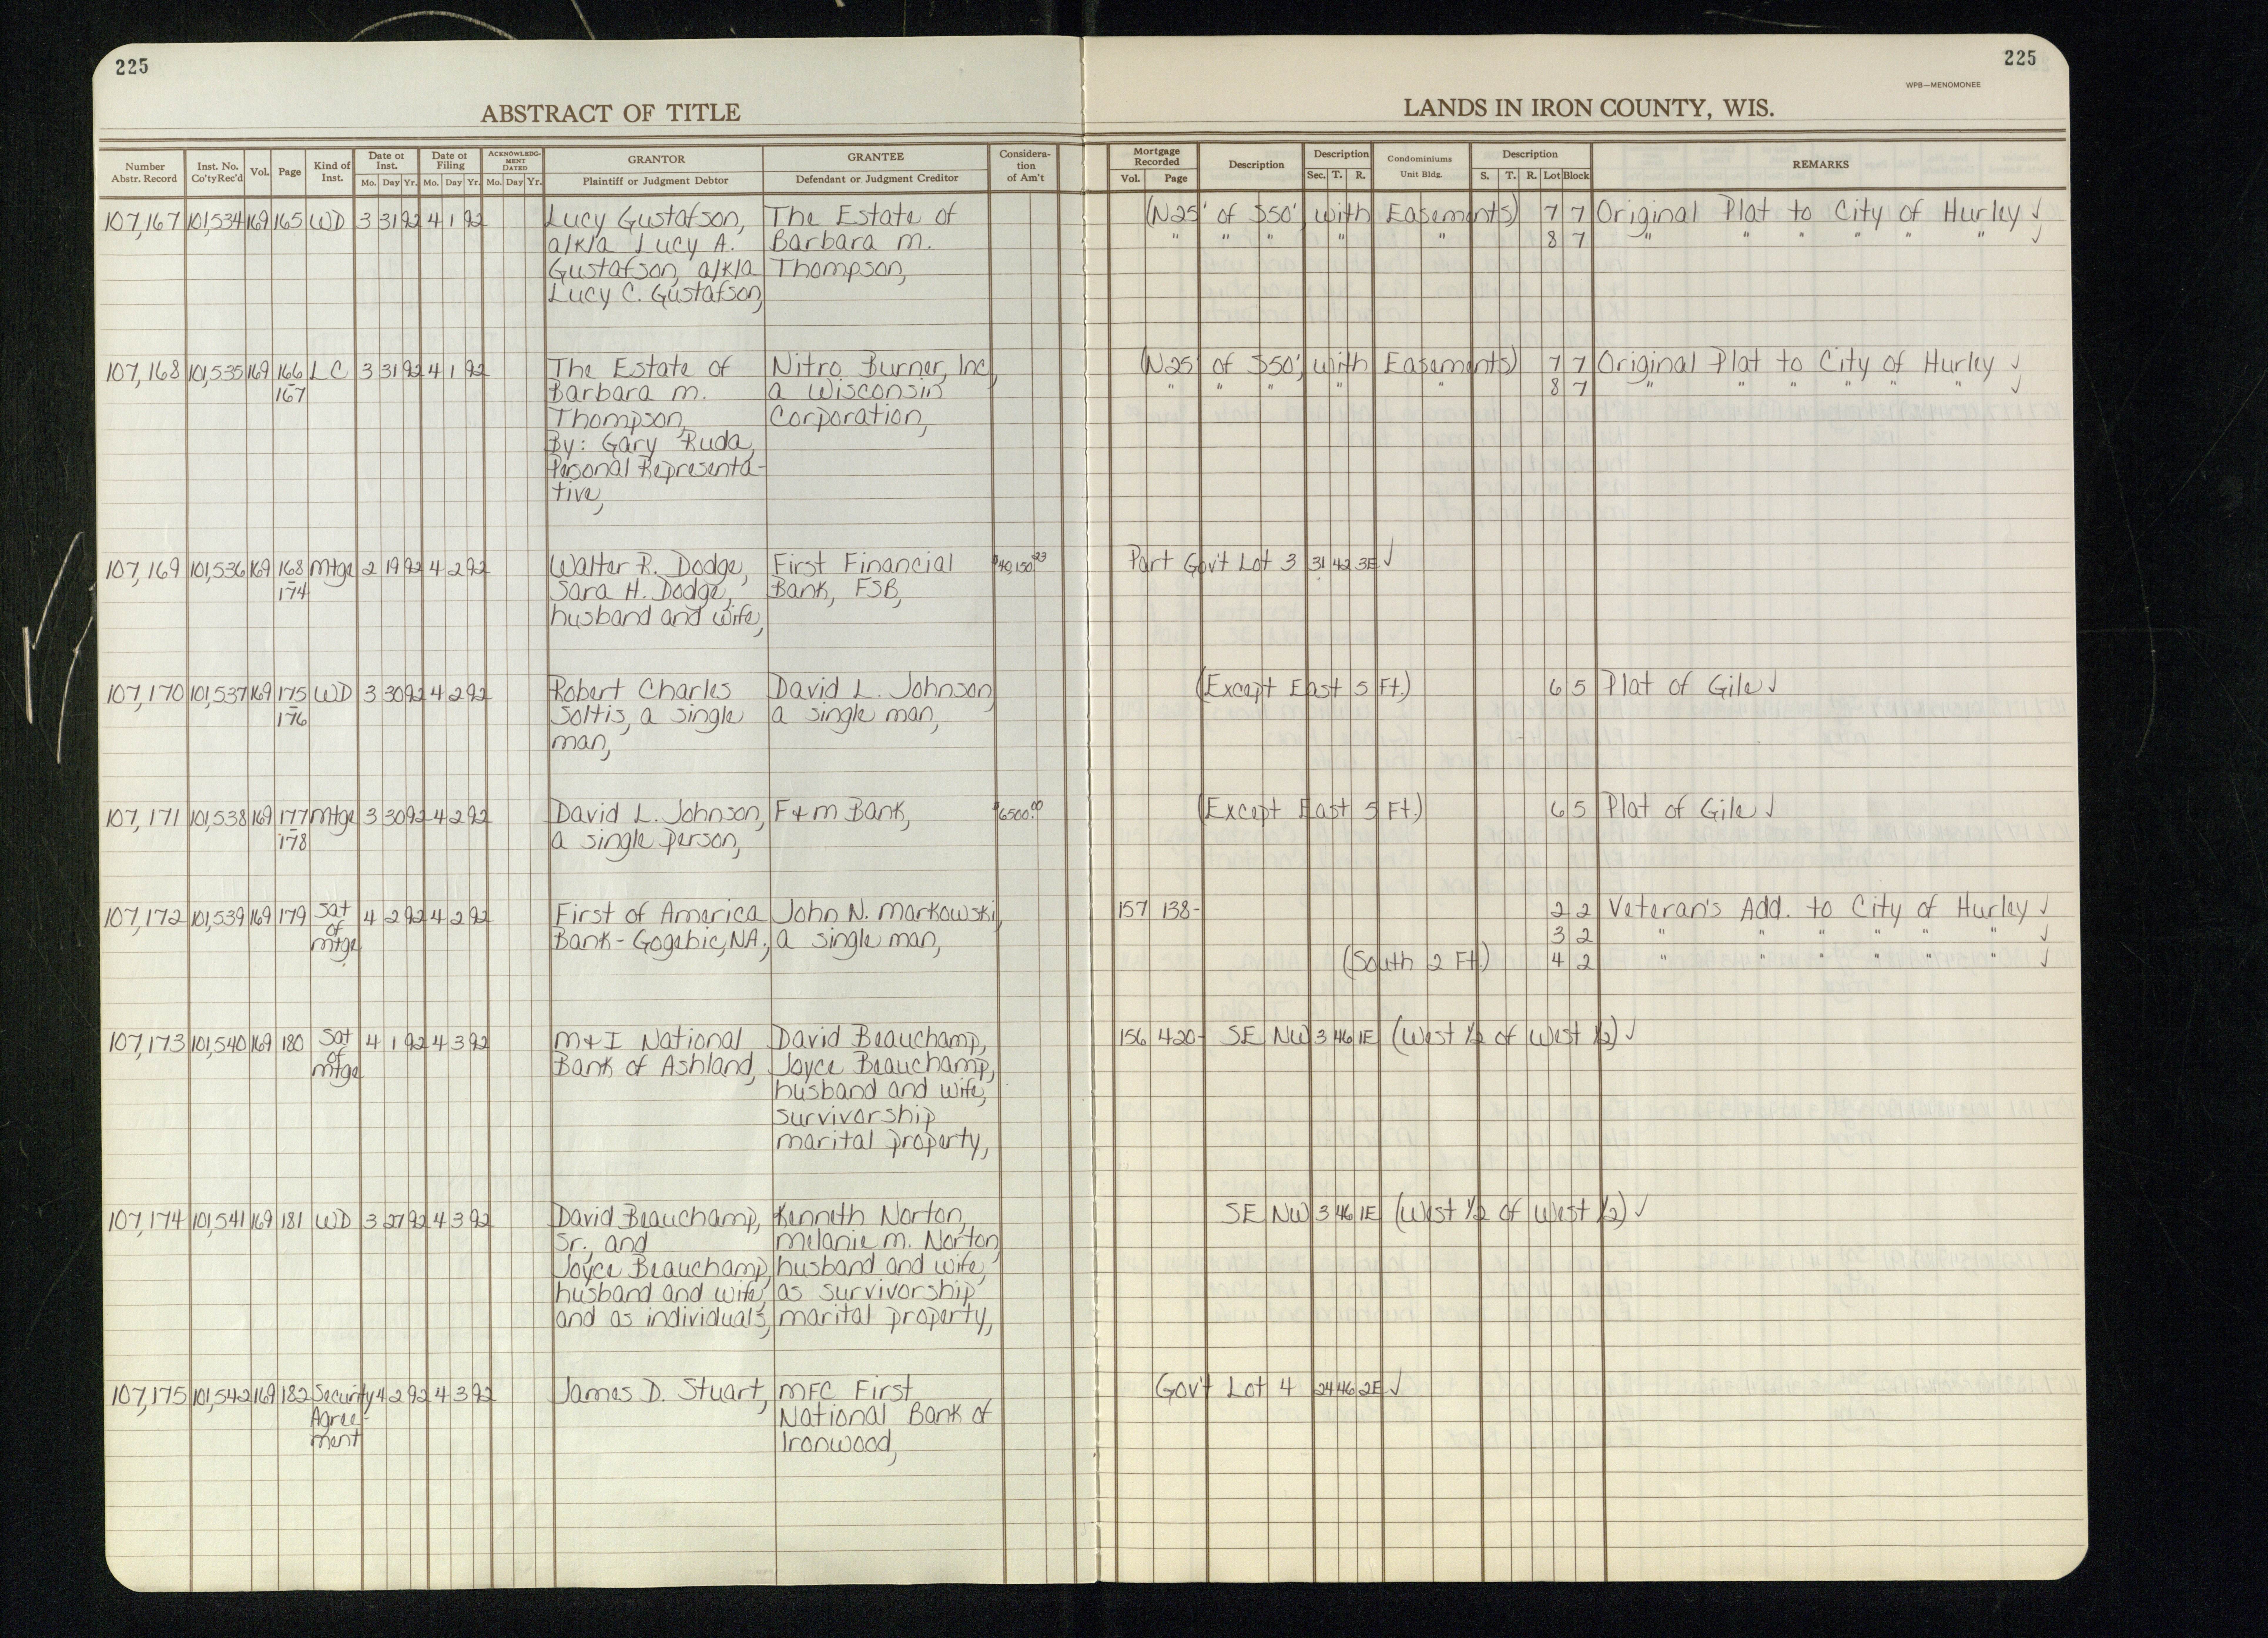 225
225
WPB—MENOMONEE
ABSTRACT OF TITLE
LANDS IN IRON COUNTY, WIS.
Number Abstr. Record | Inst. No. Co'ty Rec'd | Vol. | Page | Kind of Inst. | Date of Inst. Mo. Day Yr. | Date of Filing Mo. Day Yr. | ACKNOWLEDGMENT DATED Mo. Day Yr. | GRANTOR Plaintiff or Judgment Debtor | GRANTEE Defendant or Judgment Creditor | Consideration of Am't | Mortgage Recorded Vol. Page | Description | Description Sec. T. R. | Condominiums Unit Bldg. | Description S. T. R. Lot Block | REMARKS
107,167 101,534 169 165 WD 3 31 92 4 1 92 Lucy Gustafson, The Estate of (N25' of S50', with Easements) 7 7 Original Plat to City of Hurley ✓
a/k/a Lucy A. Barbara M. " " " " " 8 7 " " " " " " ✓
Gustafson, a/k/a Thompson,
Lucy C. Gustafson,
107,168 101,535 169 166 LC 3 31 92 4 1 92 The Estate of Nitro Burner, Inc., (N25' of S50', with Easements) 7 7 Original Plat to City of Hurley ✓
-167 Barbara M. a Wisconsin " " " " " 8 7 " " " " " " ✓
Thompson, Corporation,
By: Gary Ruda,
Personal Representa-
tive,
107,169 101,536 169 168 Mtge 2 19 92 4 2 92 Walter R. Dodge, First Financial $40,150.23 Part Gov't Lot 3 31 42 3E ✓
-174 Sara H. Dodge, Bank, FSB,
husband and wife,
107,170 101,537 169 175 WD 3 30 92 4 2 92 Robert Charles David L. Johnson, (Except East 5 Ft.) 6 5 Plat of Gile ✓
-176 Soltis, a single a single man,
man,
107,171 101,538 169 177 Mtge 3 30 92 4 2 92 David L. Johnson, F&M Bank, $6500.00 (Except East 5 Ft.) 6 5 Plat of Gile ✓
-178 a single person,
107,172 101,539 169 179 Sat 4 2 92 4 2 92 First of America John N. Markowski, 157 138- 2 2 Veteran's Add. to City of Hurley ✓
of Bank-Gogebic, NA., a single man, 3 2 " " " " " " ✓
Mtge (South 2 Ft.) 4 2 " " " " " " ✓
107,173 101,540 169 180 Sat 4 1 92 4 3 92 M&I National David Beauchamp, 156 420- SE NW 3 46 1E (West 1/2 of West 1/2) ✓
of Bank of Ashland, Joyce Beauchamp,
Mtge husband and wife,
survivorship
marital property,
107,174 101,541 169 181 WD 3 27 92 4 3 92 David Beauchamp, Kenneth Norton, SE NW 3 46 1E (West 1/2 of West 1/2) ✓
Sr., and Melanie M. Norton,
Joyce Beauchamp, husband and wife,
husband and wife, as survivorship
and as individuals, marital property,
107,175 101,542 169 182 Security 4 2 92 4 3 92 James D. Stuart, MFC First Gov't Lot 4 24 46 2E ✓
Agree- National Bank of
ment Ironwood,